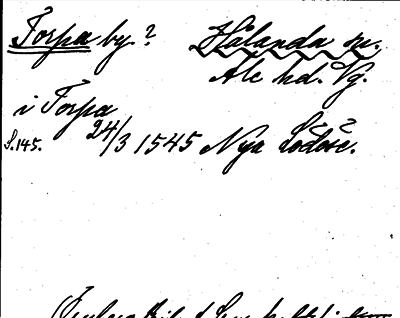 Torpa by? Hålanda sn.
Ale hd. Vg.
i Torpa
S.145. 24/3 1545 Nya Lödöse.